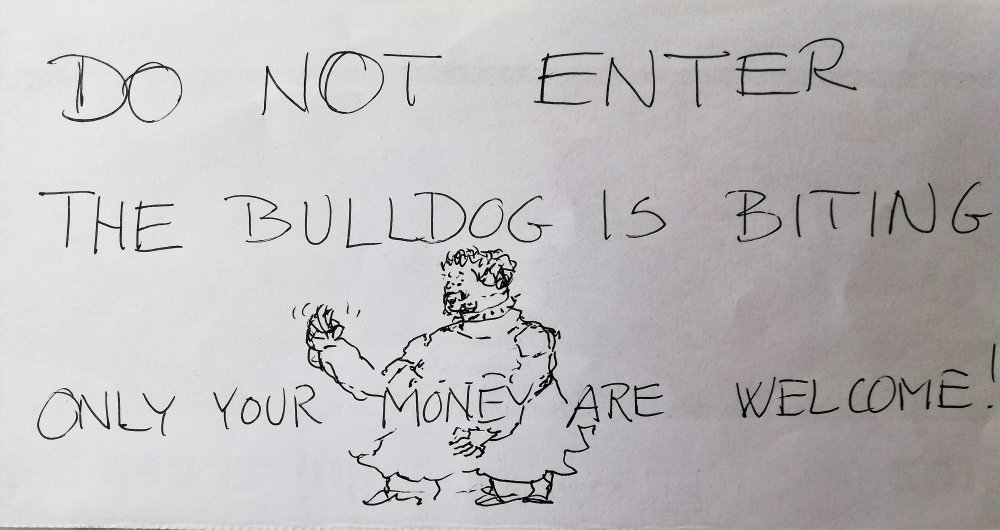 DO NOT ENTER
THE BULLDOG IS BITING
ONLY YOUR MONEY ARE WELCOME!